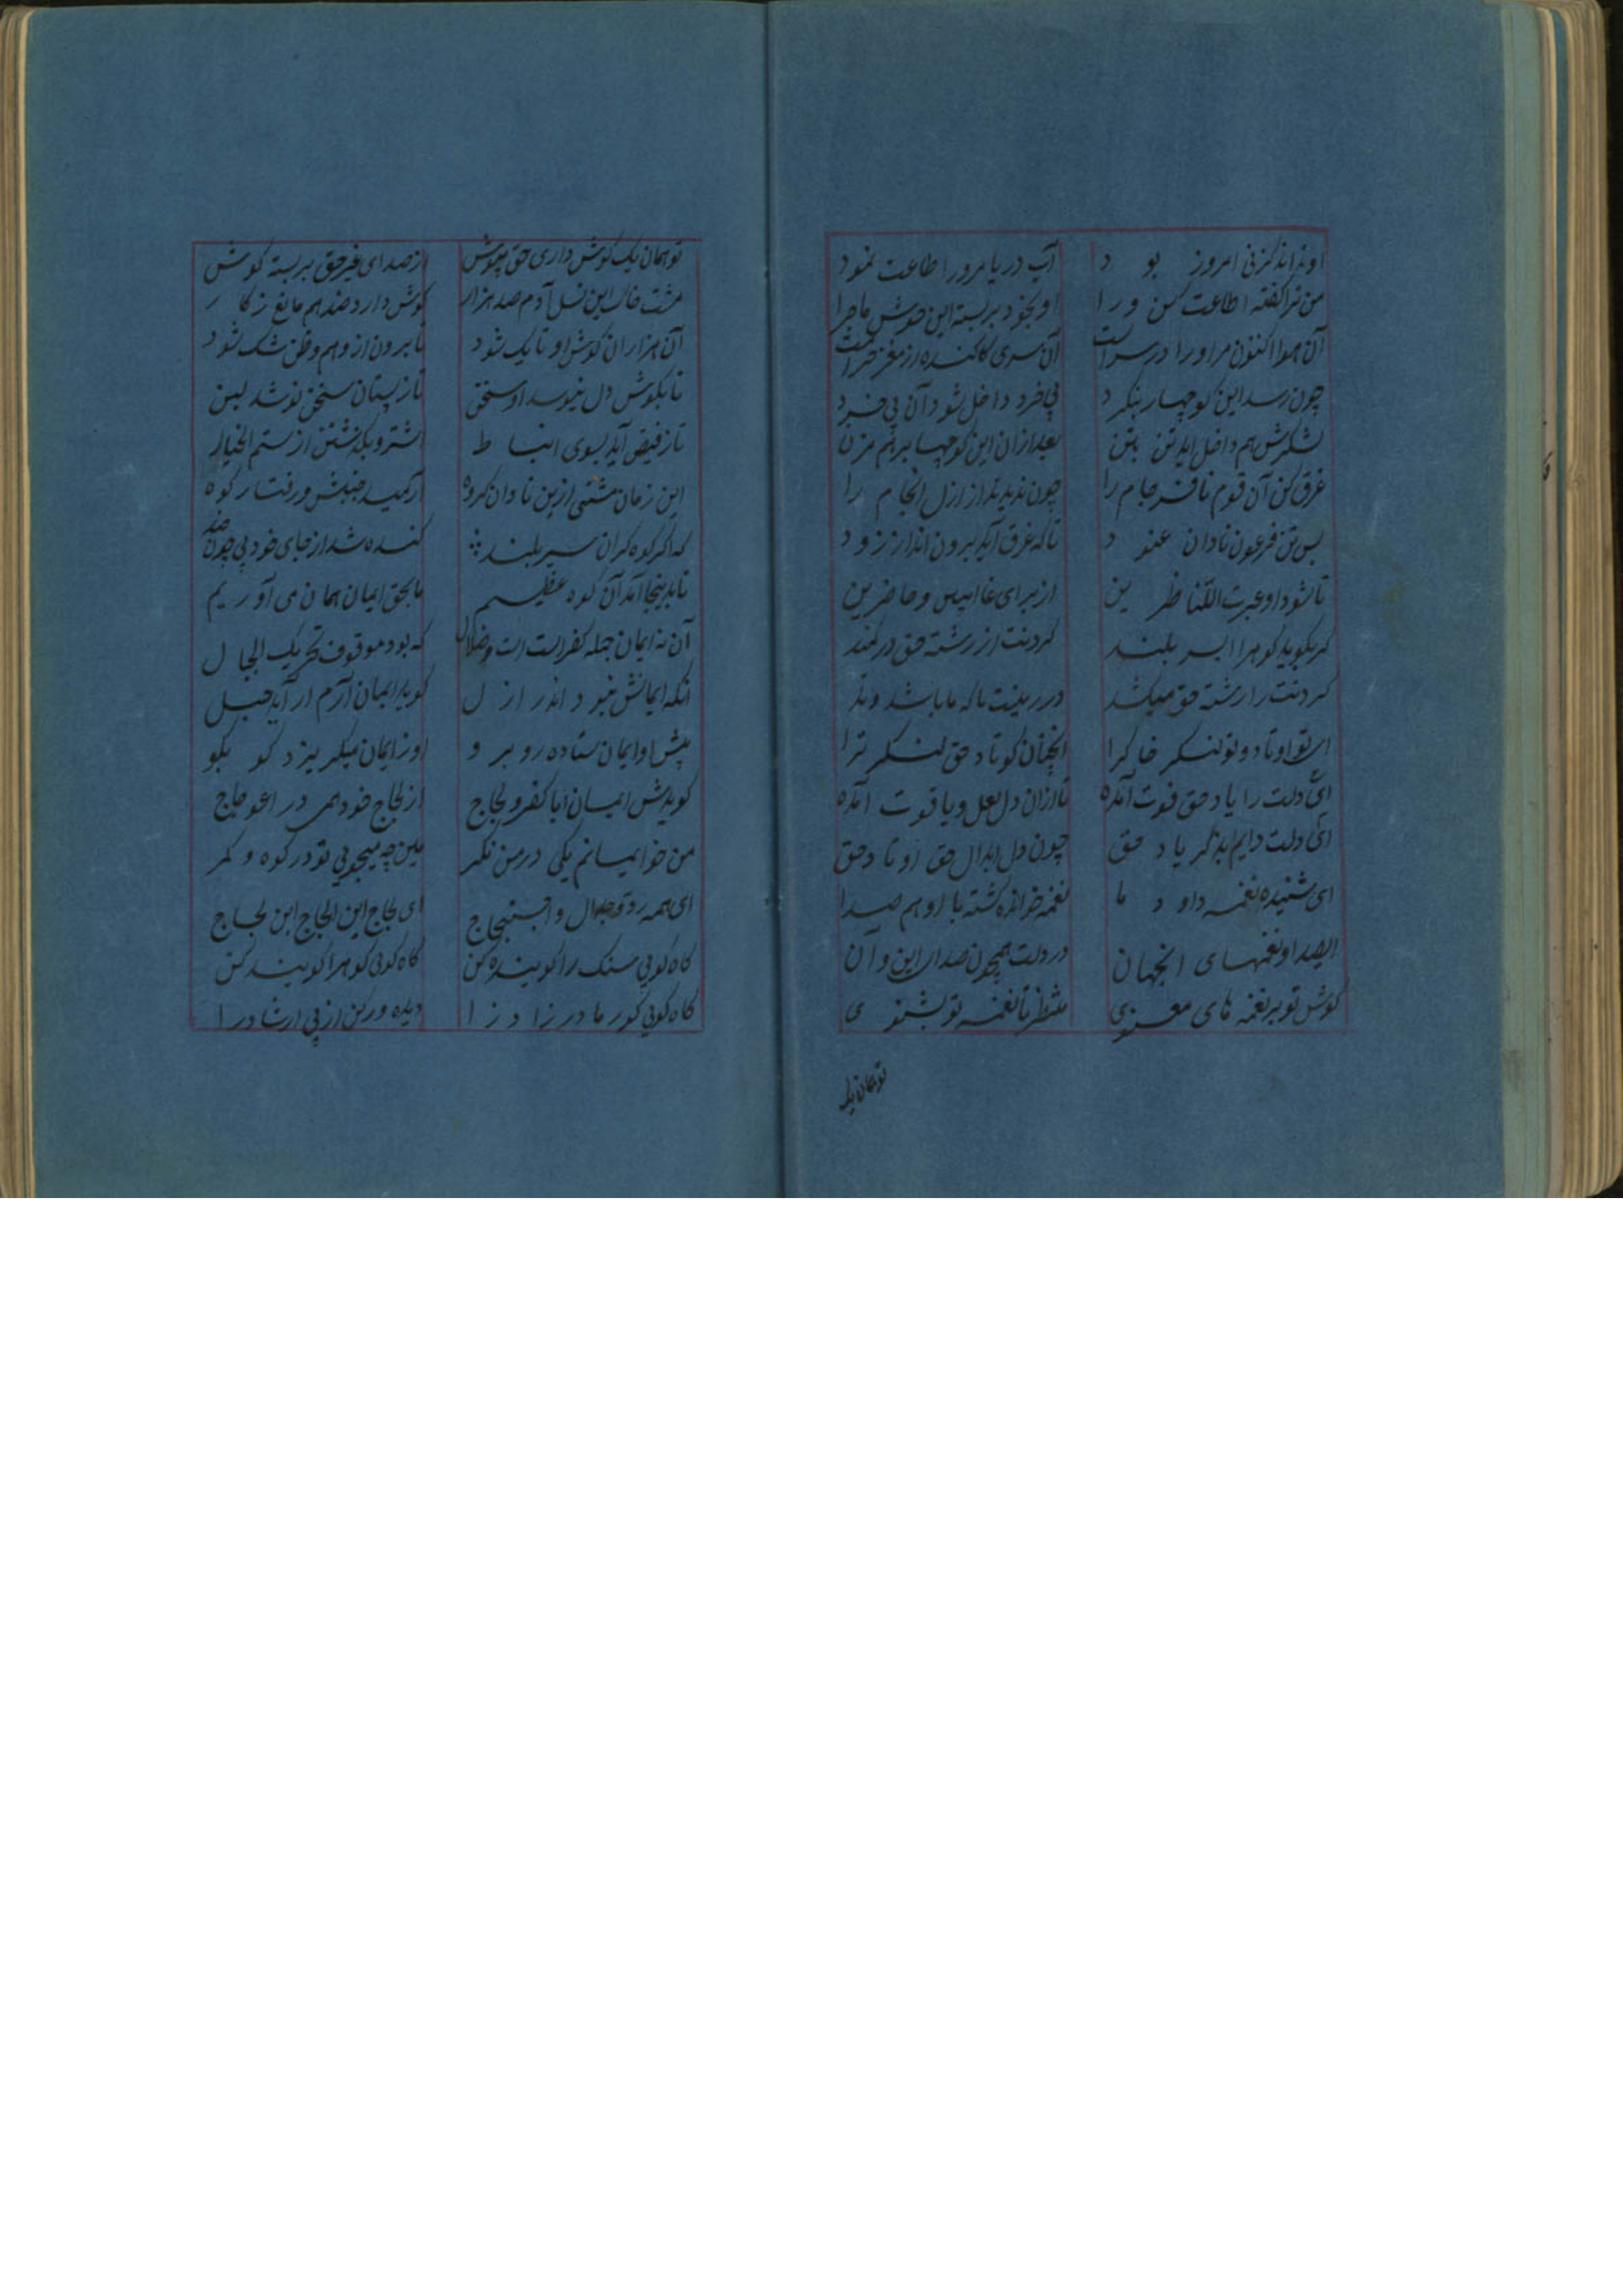 او نداند کز نی امروز بود آب دریا مرورا طاعت نمود
من ترا گفته اطاعت کن ورا او بخود بربسته این خوش ماجرا
آن هوا اکنون مر اورا در سراست آن سری کاکنده از مغز خراست
چون رسد این کوچها بنکرد بی خرد داخل شود آن بی خرد
لشکرش هم داخل اید تن بتن بعد ازان این کوچها برهم مزن
غرق کن آن قوم نافرجام را چون ندیدند از ازل انجام را
پس تن فرعون نادان عنود تا که غرق آید برون انداز زود
تا شود او عبرت للناظرین از برای غایبین و حاضرین
گر بگوید کوه را سر بلند گردنت از رشته حق در کمند
گردنت را رشته حق میکشد در زمینت تا که ما باشد وتد
ای تو اوتاد و تو لنکر خاک را آنچنان کوتاد حق لنکر ترا
ای دلت را یاد حق قوت آمده تا ازان دل لعل و یاقوت آمده
ای دلت دایم بذکر یاد حق چون دل ابدال حق اوتاد حق
ای شنیده نغمه داود ما نغمه خوانده کشته با او هم صدا
ای صدا و نغمهای انجهان در دلت همچون صدای این و آن
گوش تو بر نغمه های معنوی منتظر تا نغمه تو بشنوی
تو همان یک
تو همان یک گوش داری حق نیوش از صدای غیر حق بربسته گوش
مشت خاک این نسل آدم صد هزار گوش دارد صد هم مانع ز کار
آن هزاران گوش او تا یک شود تا برون از وهم و ظن شک شود
تا بگوش دل نیوسد او سخن تا ز پستان سخن نوشد لبن
تا ز فیض آید بسوی انبساط اشتر و بگذشتن از سم الخیاط
این زمان مشتی ازین نادان گروه آرمید جنبش و رفتار کوه
که اگر کوه گران سر بلند کنده شد از جای خود بی چون و چند
تا بدینجا آمد آن کوه عظیم ما بحق ایمان همان می آوریم
آن نه ایمان جمله کفر است و ضلال که بود موقوف تحریک الجبال
آنکه ایمانش نبود اندر ازل گوید ایمان آرم ار آید جبل
پیش او ایمان ستاده روبرو او ز ایمان میگریزد کو بکو
گویدش ایمان ایا کفر و لجاج از لجاج خود همی در اعوجاج
من خود ایمانم یکی در من نکر هین چه میجویی تو در کوه و کمر
ای همه رد تو جدال و احتجاج ای لجاج ابن اللجاج ابن لجاج
گاه گویی سنک را گوینده کن گاه گویی کوه را گوینده کن
گاه گویی کور مادر زاد زا دیده ور کن از پی ارشاد را